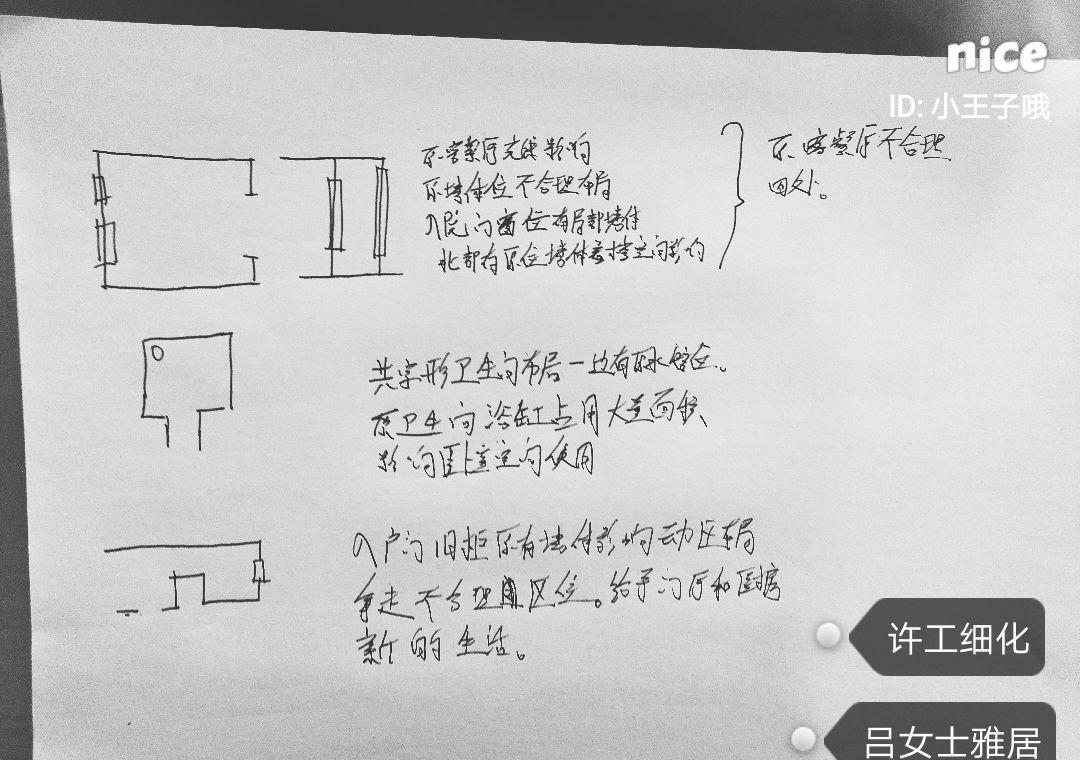 nice
ID: 小王子哦
原客餐厅光线影响
原墙体位不合理布局
入院门窗位有局部墙体
北部有原位墙体遮挡空间影响
原客餐厅不合理
四处。
共字形卫生间布局一边有下水管位。
原卫生间浴缸占用大量面积
影响卧室空间使用
入户门旧柜原有墙体影响动区布局
拿走不合理区位。给予门厅和厨房
新的生活。
许工细化
吕女士雅居